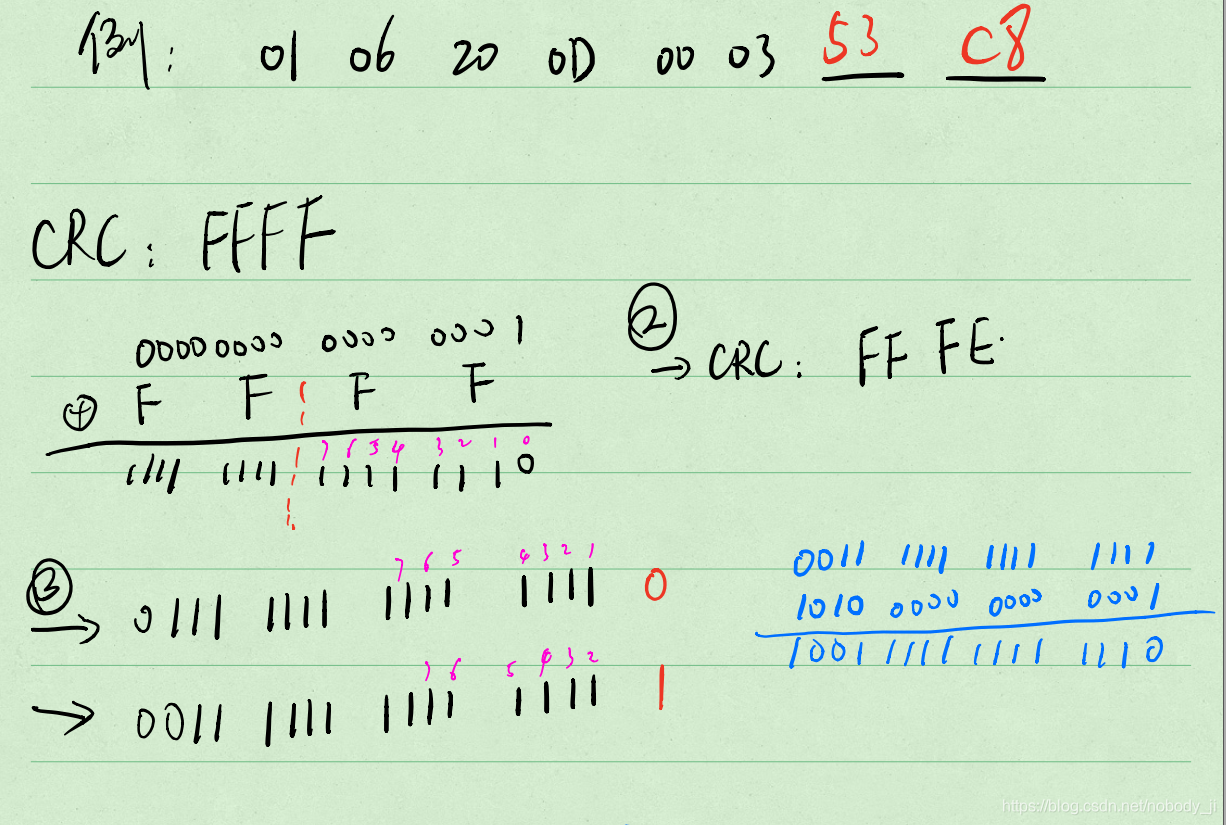 例: 01 06 20 0D 00 03 53 C8
CRC: FFFF
0000 0000 0000 0001
⊕ F F F F
7 6 5 4 3 2 1 0
1111 1111 1111 1110
② → CRC: FF FE.
③
7 6 5 4 3 2 1
→ 0111 1111 1111 1111 0
7 6 5 4 3 2
→ 0011 1111 1111 1111 1
0011 1111 1111 1111
1010 0000 0000 0001
1001 1111 1111 1110
https://blog.csdn.net/nobody_jl